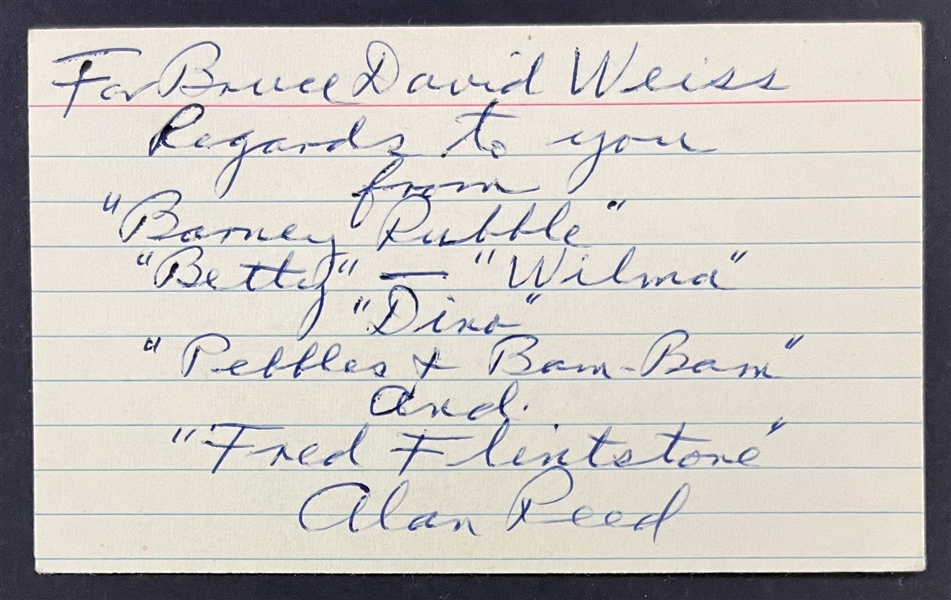 For Bruce David Weiss
Regards to you
from
"Barney Rubble"
"Betty" — "Wilma"
"Dino"
"Pebbles + Bam-Bam"
and.
"Fred Flintstone"
Alan Reed